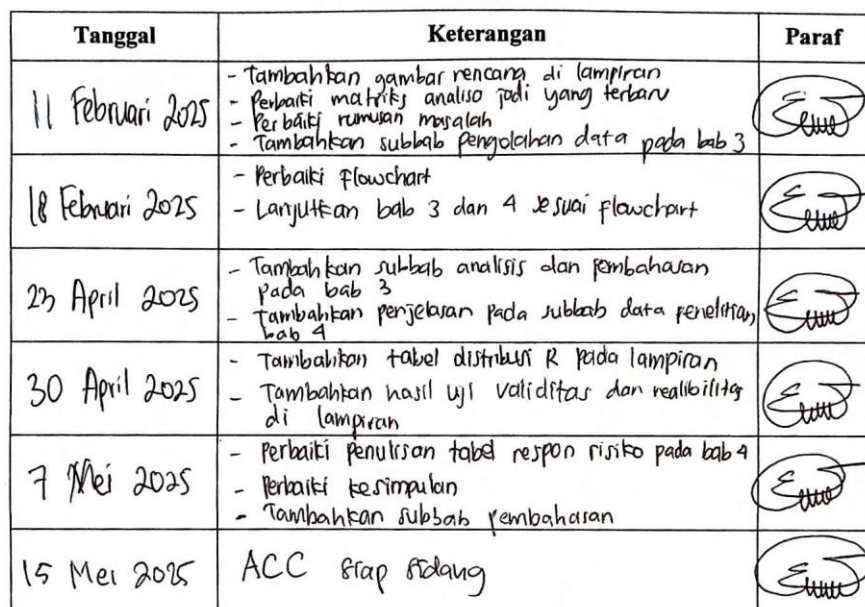 Tanggal Keterangan Paraf
11 Februari 2025
- Tambahkan gambar rencana di lampiran
- Perbaiki matriks analisa jadi yang terbaru
- Perbaiki rumusan masalah
- Tambahkan subbab pengolahan data pada bab 3
18 Februari 2025
- Perbaiki flowchart
- Lanjutkan bab 3 dan 4 sesuai flowchart
23 April 2025
- Tambahkan subbab analisis dan pembahasan
pada bab 3
- Tambahkan penjelasan pada subbab data penelitian
bab 4
30 April 2025
- Tambahkan tabel distribusi R pada lampiran
- Tambahkan hasil uji validitas dan realibilitas
di lampiran
7 Mei 2025
- Perbaiki penulisan tabel respon risiko pada bab 4
- Perbaiki kesimpulan
- Tambahkan subbab pembahasan
15 Mei 2025
ACC siap sidang